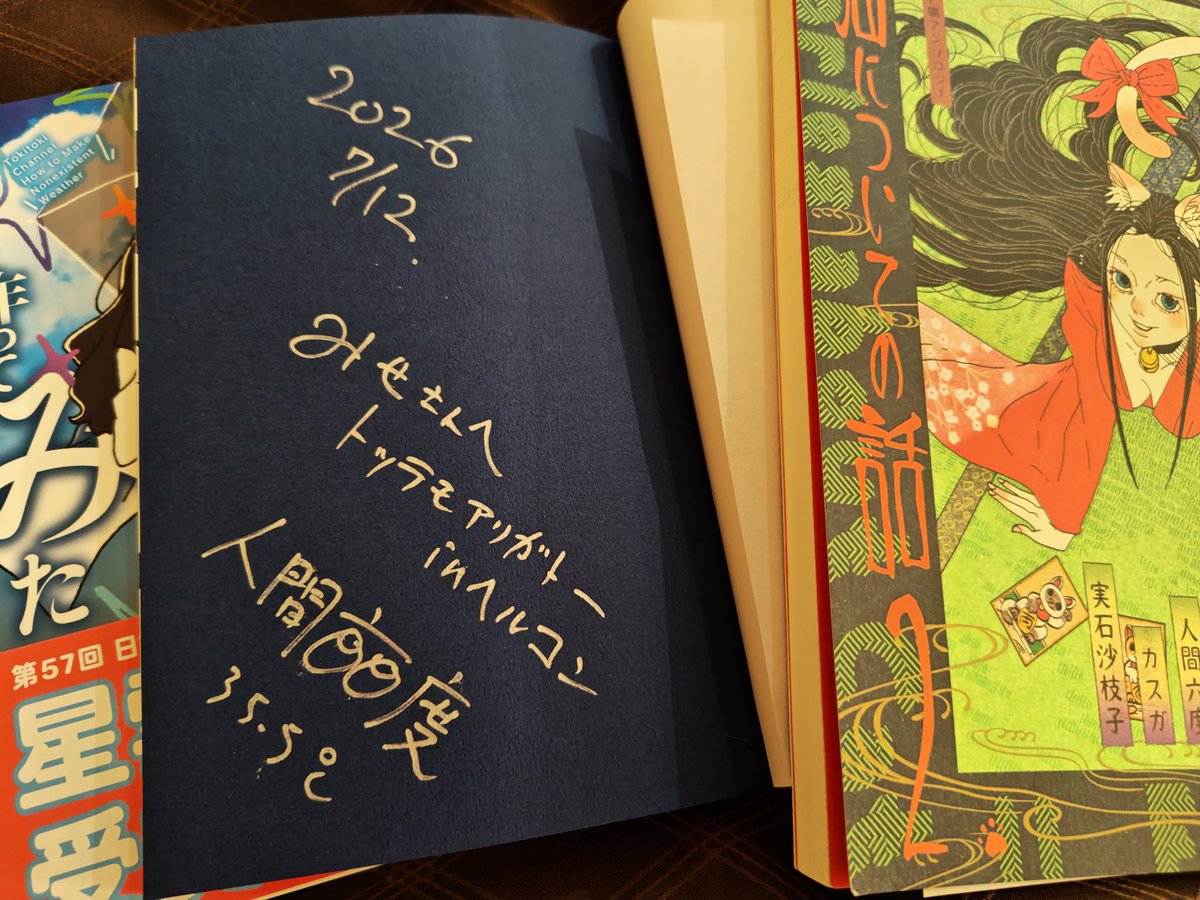 Tokitoki
Channel
How to Make
Nonexistent
Weather
作って
みた
第57回 日
星
受
2026
7/12.
みせさんへ
トッテモアリガトー
inヘルコン
人間六度
35.5℃
についての話
2
人間六度
カスガ
実石沙枝子